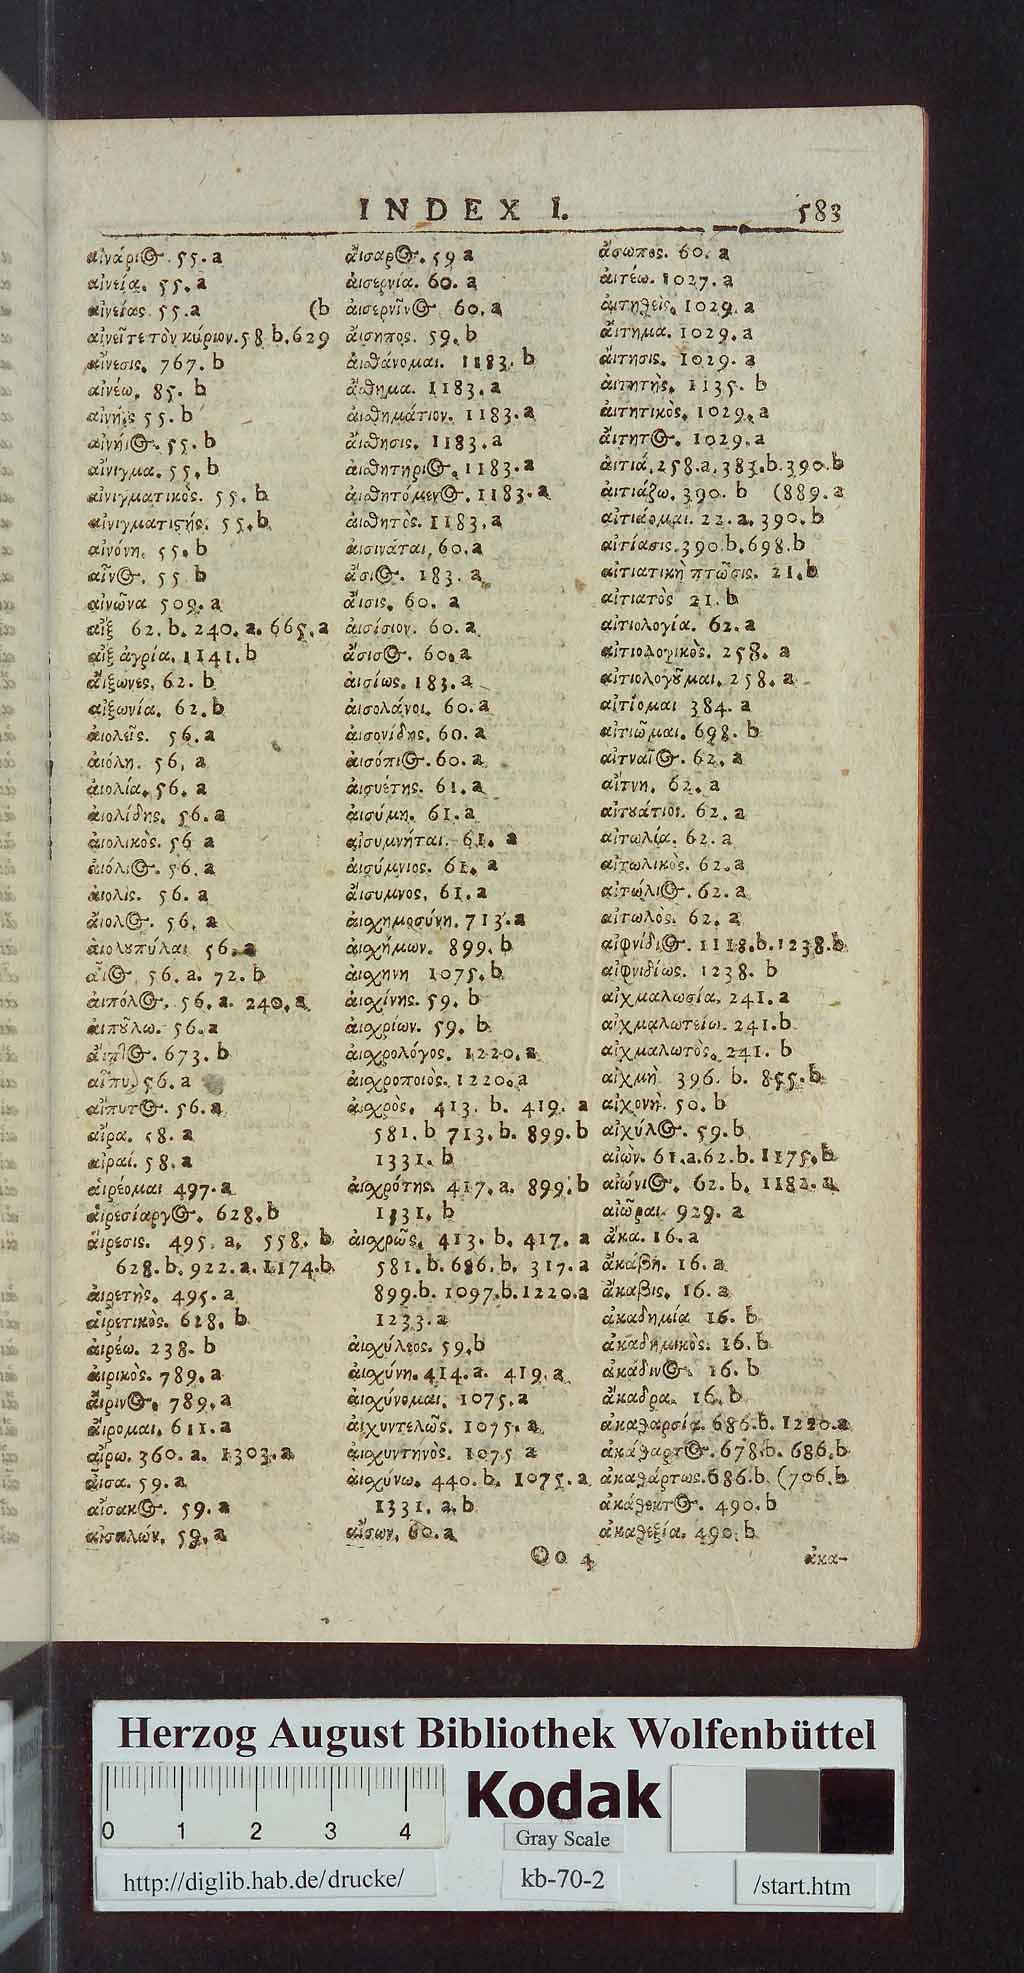 INDEX I. 583
αἰνάριος. 55. a
αἰνεία. 55. a
αἰνείας. 55. a (b
αἰνεῖτε τὸν κύριον. 58. b. 629
αἴνεσις. 767. b
αἰνέω. 85. b
αἰνὴς 55. b
αἰνήιος. 55. b
αἴνιγμα. 55. b
αἰνιγματικὸς. 55. b
αἰνιγματιστής. 55. b
αἰνόνη. 55. b
αἶνος. 55 b
αἰνῶνα 509. a
αἲξ 62. b. 240. a. 665. a
αἲξ ἀγρία. 1141. b
ἄιξωνες. 62. b
αἰξωνία. 62. b
ἀιολεῖς. 56. a
ἀιόλη. 56. a
ἀιολία. 56. a
ἀιολίδης. 56. a
ἀιολικὸς. 56 a
ἀιόλιος. 56. a
ἀιολὶς. 56. a
ἄιολος. 56. a
ἀιολουπύλαι 56. a
αἶος. 56. a. 72. b
ἀιπόλος. 56. a. 240. a
ἀιπούλω. 56. a
673. b
αἶπυ. 56. a
αἴπυτος. 56. a
αἶρα. 58. a
αἰραί. 58. a
αἱρέομαι 497. a
αἱρεσίαρχος. 628. b
αἵρεσις. 495. a. 558. b
628. b. 922. a. 1174. b
ἁιρετὴς. 495. a
αἱρετικὸς. 628. b
ἁιρέω. 238. b
ἁιρικὸς. 789. a
ἅιρινος. 789. a
ἄιρομαι. 611. a
αἴρω. 360. a. 1303. a
αἶσα. 59. a
αἴσακος. 59. a
αἰσαλών. 59. a
ἄισαρος. 59 a
ἀισερνία. 60. a
ἀισερνῖνος 60. a
ἄισηπος. 59. b
ἀισθάνομαι. 1183. b
ἄισθημα. 1183. a
ἀισθημάτιον. 1183. a
ἄισθησις. 1183. a
ἀισθητήριος. 1183. a
ἀισθητόμενος. 1183. a
ἀισθητὸς. 1183. a
ἀισινάται. 60. a
ἄισιος. 183. a
ἄισις. 60. a
ἀισίσιον. 60. a
ἄισισος. 60. a
ἀισίως. 183. a
ἀισολάνοι. 60. a
ἀισονίδης. 60. a
ἀισόπιος. 60. a
ἀισυέτης. 61. a
ἀισύμη. 61. a
αἰσυμνήται. 61. a
ἀισύμνιος. 61. a
ἄισυμνος. 61. a
ἀισχημοσύνη. 713. a
ἀισχήμων. 899. b
ἀισχηνη 1075. b
ἀισχίνης. 59. b
ἀισχρίων. 59. b
ἀισχρολόγος. 1220. a
ἀισχροποιὸς. 1220. a
ἀισχρὸς. 413. b. 419. a
581. b 713. b. 899. b
1331. b
ἀισχρότης. 417. a. 899. b
1331. b
ἀισχρῶς. 413. b. 417. a
581. b. 686. b. 317. a
899. b. 1097. b. 1220. a
1233. a
ἀισχύλεος. 59. b
ἀισχύνη. 414. a. 419. a
ἀισχύνομαι. 1075. a
ἀιχυντελῶς. 1075. a
ἀισχυντηνὸς. 1075 a
ἀισχύνω. 440. b. 1075. a
1331. a. b
αἴσων. 60. a
ἄσωπος. 60. a
ἀιτέω. 1027. a
ἀιτηθεὶς. 1029. a
ἄιτημα. 1029. a
ἄιτησις. 1029. a
ἀιτητὴς. 1135. b
ἀιτητικὸς. 1029. a
ἄιτητος. 1029. a
ἀιτιά. 258. a. 383. b. 390. b
ἀιτιάζω. 390. b (889. a
αἰτιάομαι. 22. a. 390. b
αἰτίασις. 390. b. 698. b
αἰτιατικὴ πτῶσις. 21. b
αἰτιατὸς 21. b
αἰτιολογία. 62. a
αἰτιολογικὸς. 258. a
αἰτιολογοῦμαι. 258. a
αἰτίομαι 384. a
αἰτιῶμαι. 698. b
αἰτναῖος. 62. a
αἴτνη. 62. a
αἰτουάτιοι. 62. a
αἰτωλία. 62. a
αἰτωλικὸς. 62. a
αἰτώλιος. 62. a
αἰτωλὸς. 62. a
αἰφνίδιος. 1118. b. 1238. b
αἰφνιδίως. 1238. b
αἰχμαλωσία. 241. a
αἰχμαλωτείω. 241. b
αἰχμαλωτὸς. 241. b
αἰχμὴ 396. b. 855. b
αἰχονὴ. 50. b
αἰχύλος. 59. b
αἰὼν. 61. a. 62. b. 1175. b
αἰώνιος. 62. b. 1182. a
αἰῶραι. 929. a
ἄκα. 16. a
ἀκάβη. 16. a
ἄκαβις. 16. a
ἀκαδημία 16. b
ἀκαδημικὸς. 16. b
ἀκάδινος. 16. b
ἄκαδρα. 16. b
ἀκαθαρσία. 686. b. 1220. a
ἀκάθαρτος. 678. b. 686. b
ἀκαθάρτως. 686. b (706. b
ἀκάθεκτος. 490. b
ἀκαθεξία. 490. b
Oo 4 ἀκα-
Herzog August Bibliothek Wolfenbüttel
0 1 2 3 4
Kodak
Gray Scale
http://diglib.hab.de/drucke/ kb-70-2 /start.htm